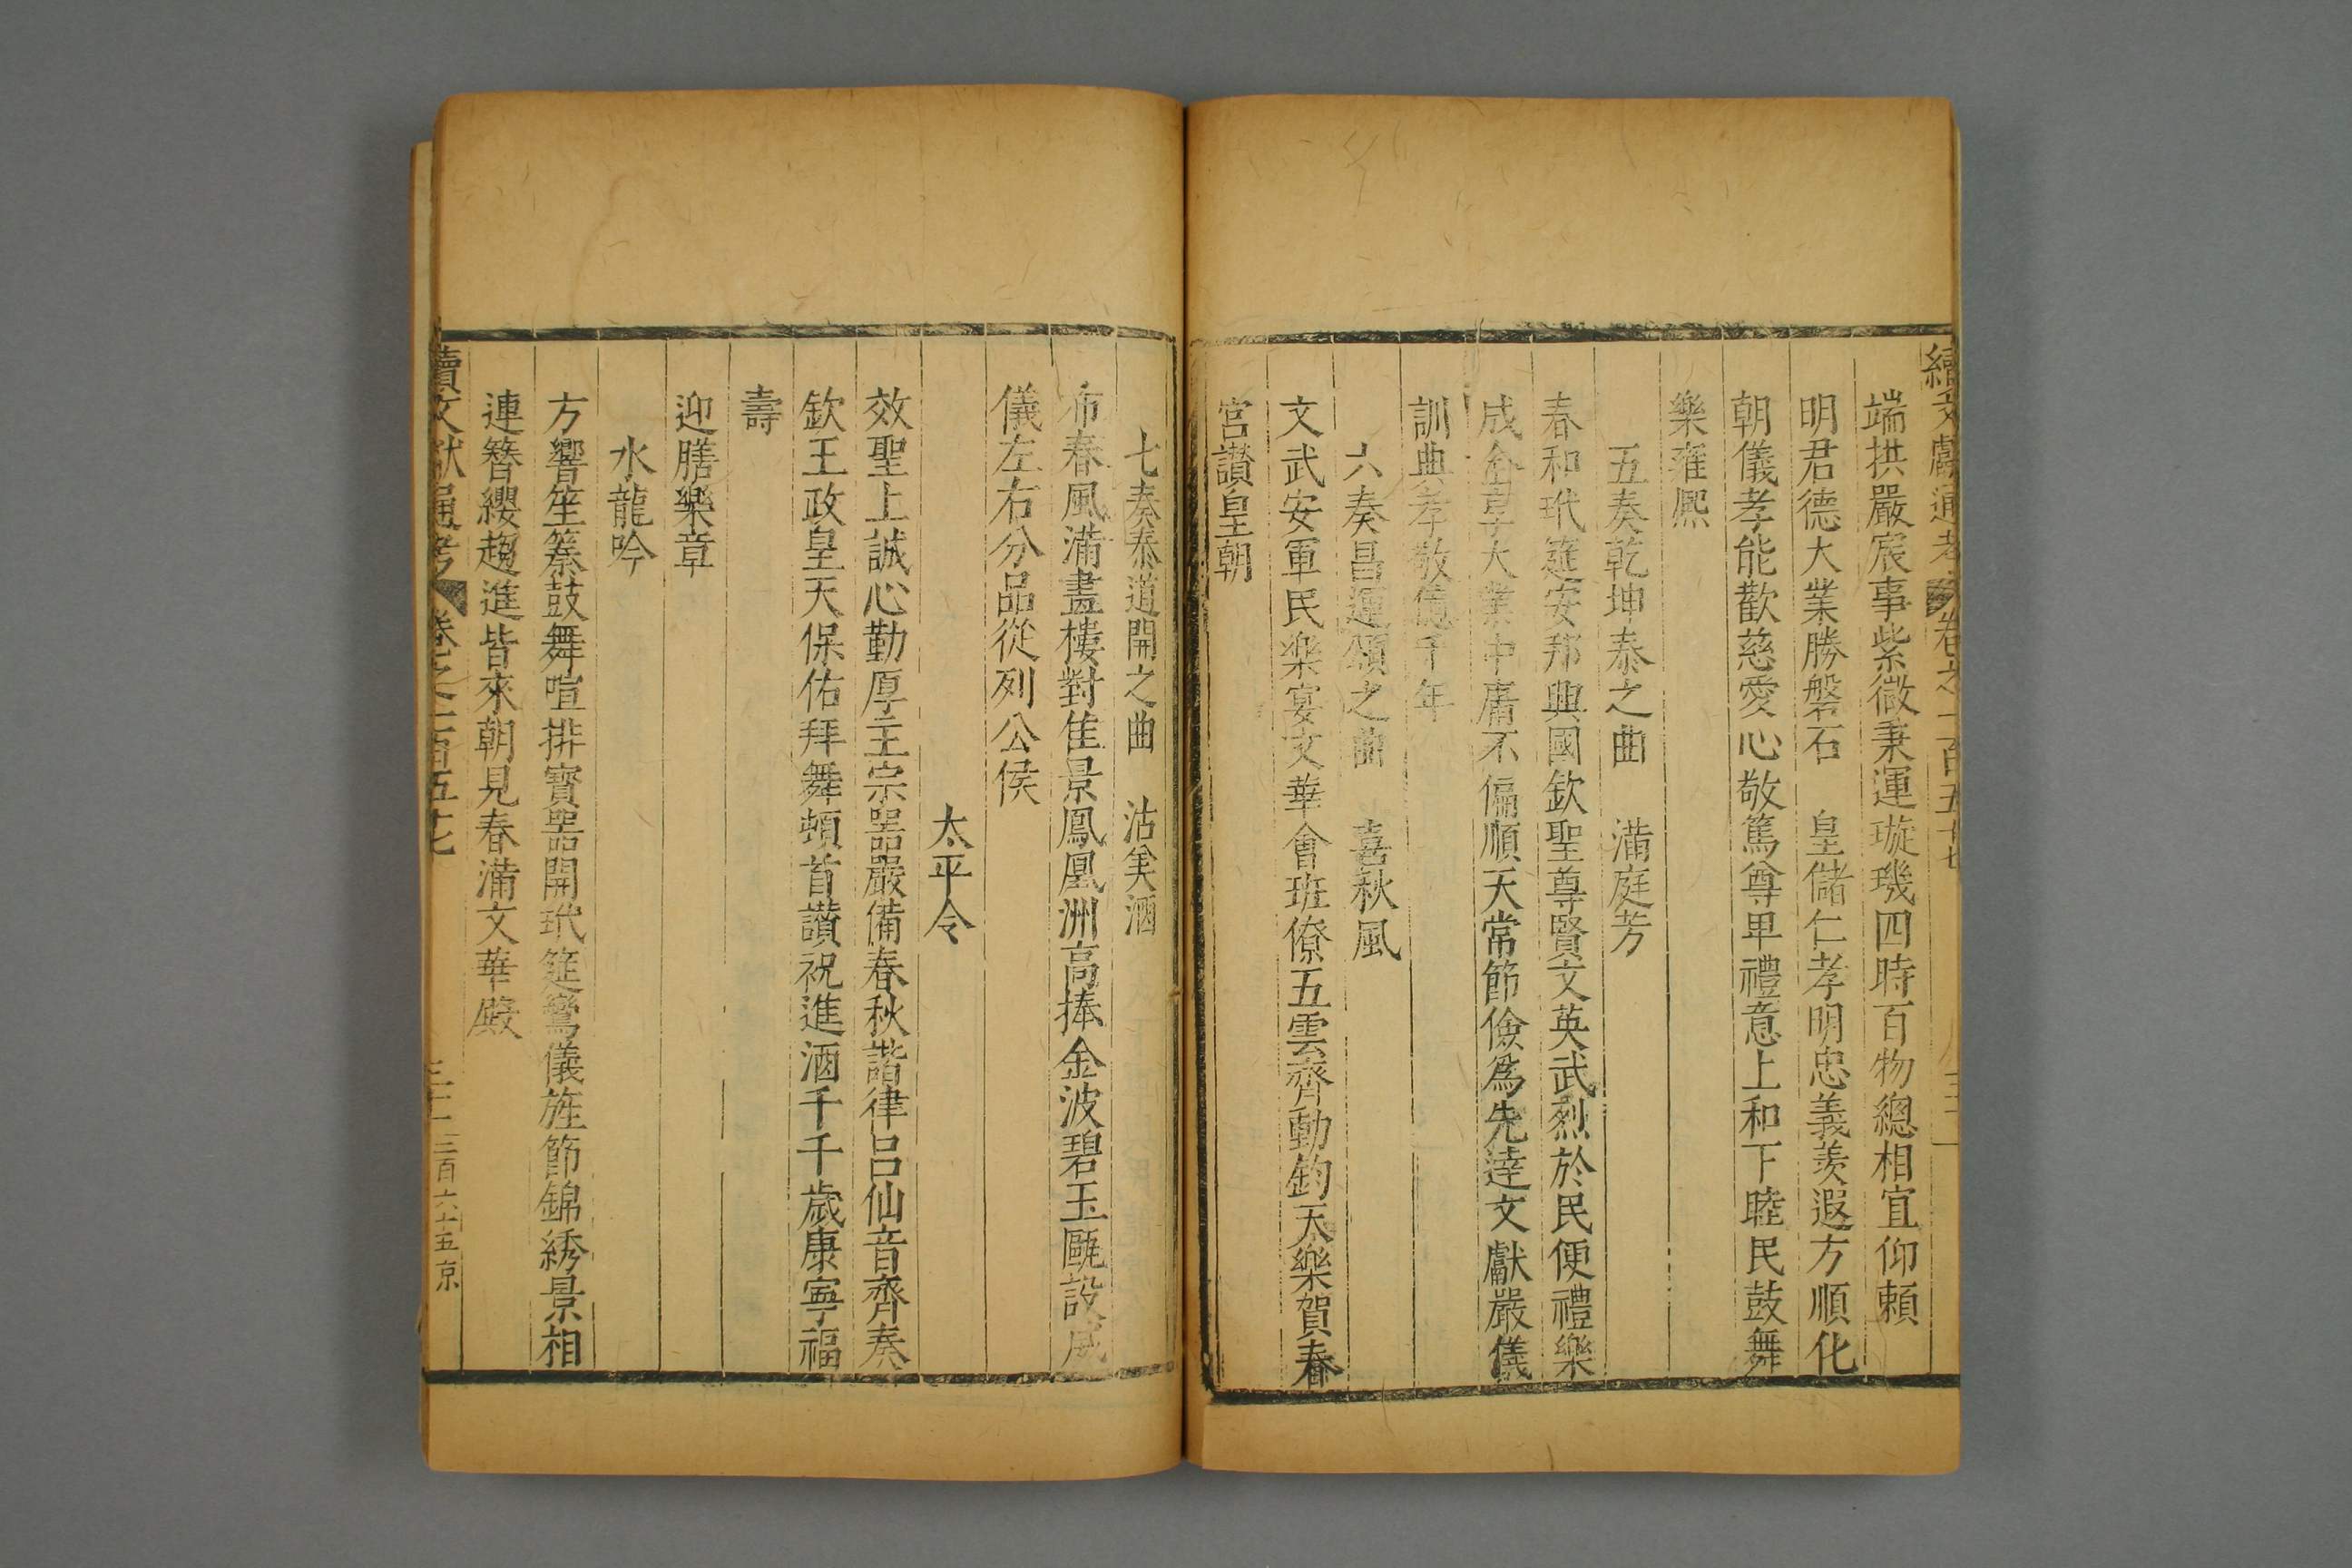 續文獻通考 卷之一百五十七
端拱嚴宸事紫微秉運璇璣四時百物總相宜仰賴
明君德大業勝磐石 皇儲仁孝明忠義羨遐方順化
朝儀孝能歡慈愛心敬篤尊卑禮意上和下睦民鼓舞
樂雍熈
五奏乾坤泰之曲 滿庭芳
春和玳筵安邦興國欽聖尊賢文英武烈於民便禮樂
成全享大業中庸不偏順天常節儉爲先達文獻嚴儀
訓典孝敬億千年
六奏昌運頌之曲 喜秋風
文武安軍民樂宴文華會班僚五雲齊動鈞天樂賀春
宮讃皇朝
七奏泰道開之曲 沽美酒
布春風滿畫樓對佳景鳳凰洲高捧金波碧玉甌設威
儀左右分品從列公侯
太平令
效聖上誠心勤厚主宗器嚴備春秋諧律呂仙音齊奏
欽王政皇天保佑拜舞頓首讃祝進酒千千歲康寧福
壽
迎膳樂章
水龍吟
方響笙篆鼓舞喧排寳器開玳筵鸞儀旌節錦綉景相
連簪纓趨進皆來朝見春滿文華殿
續文獻通考 卷之一百五十七 三百六十五京